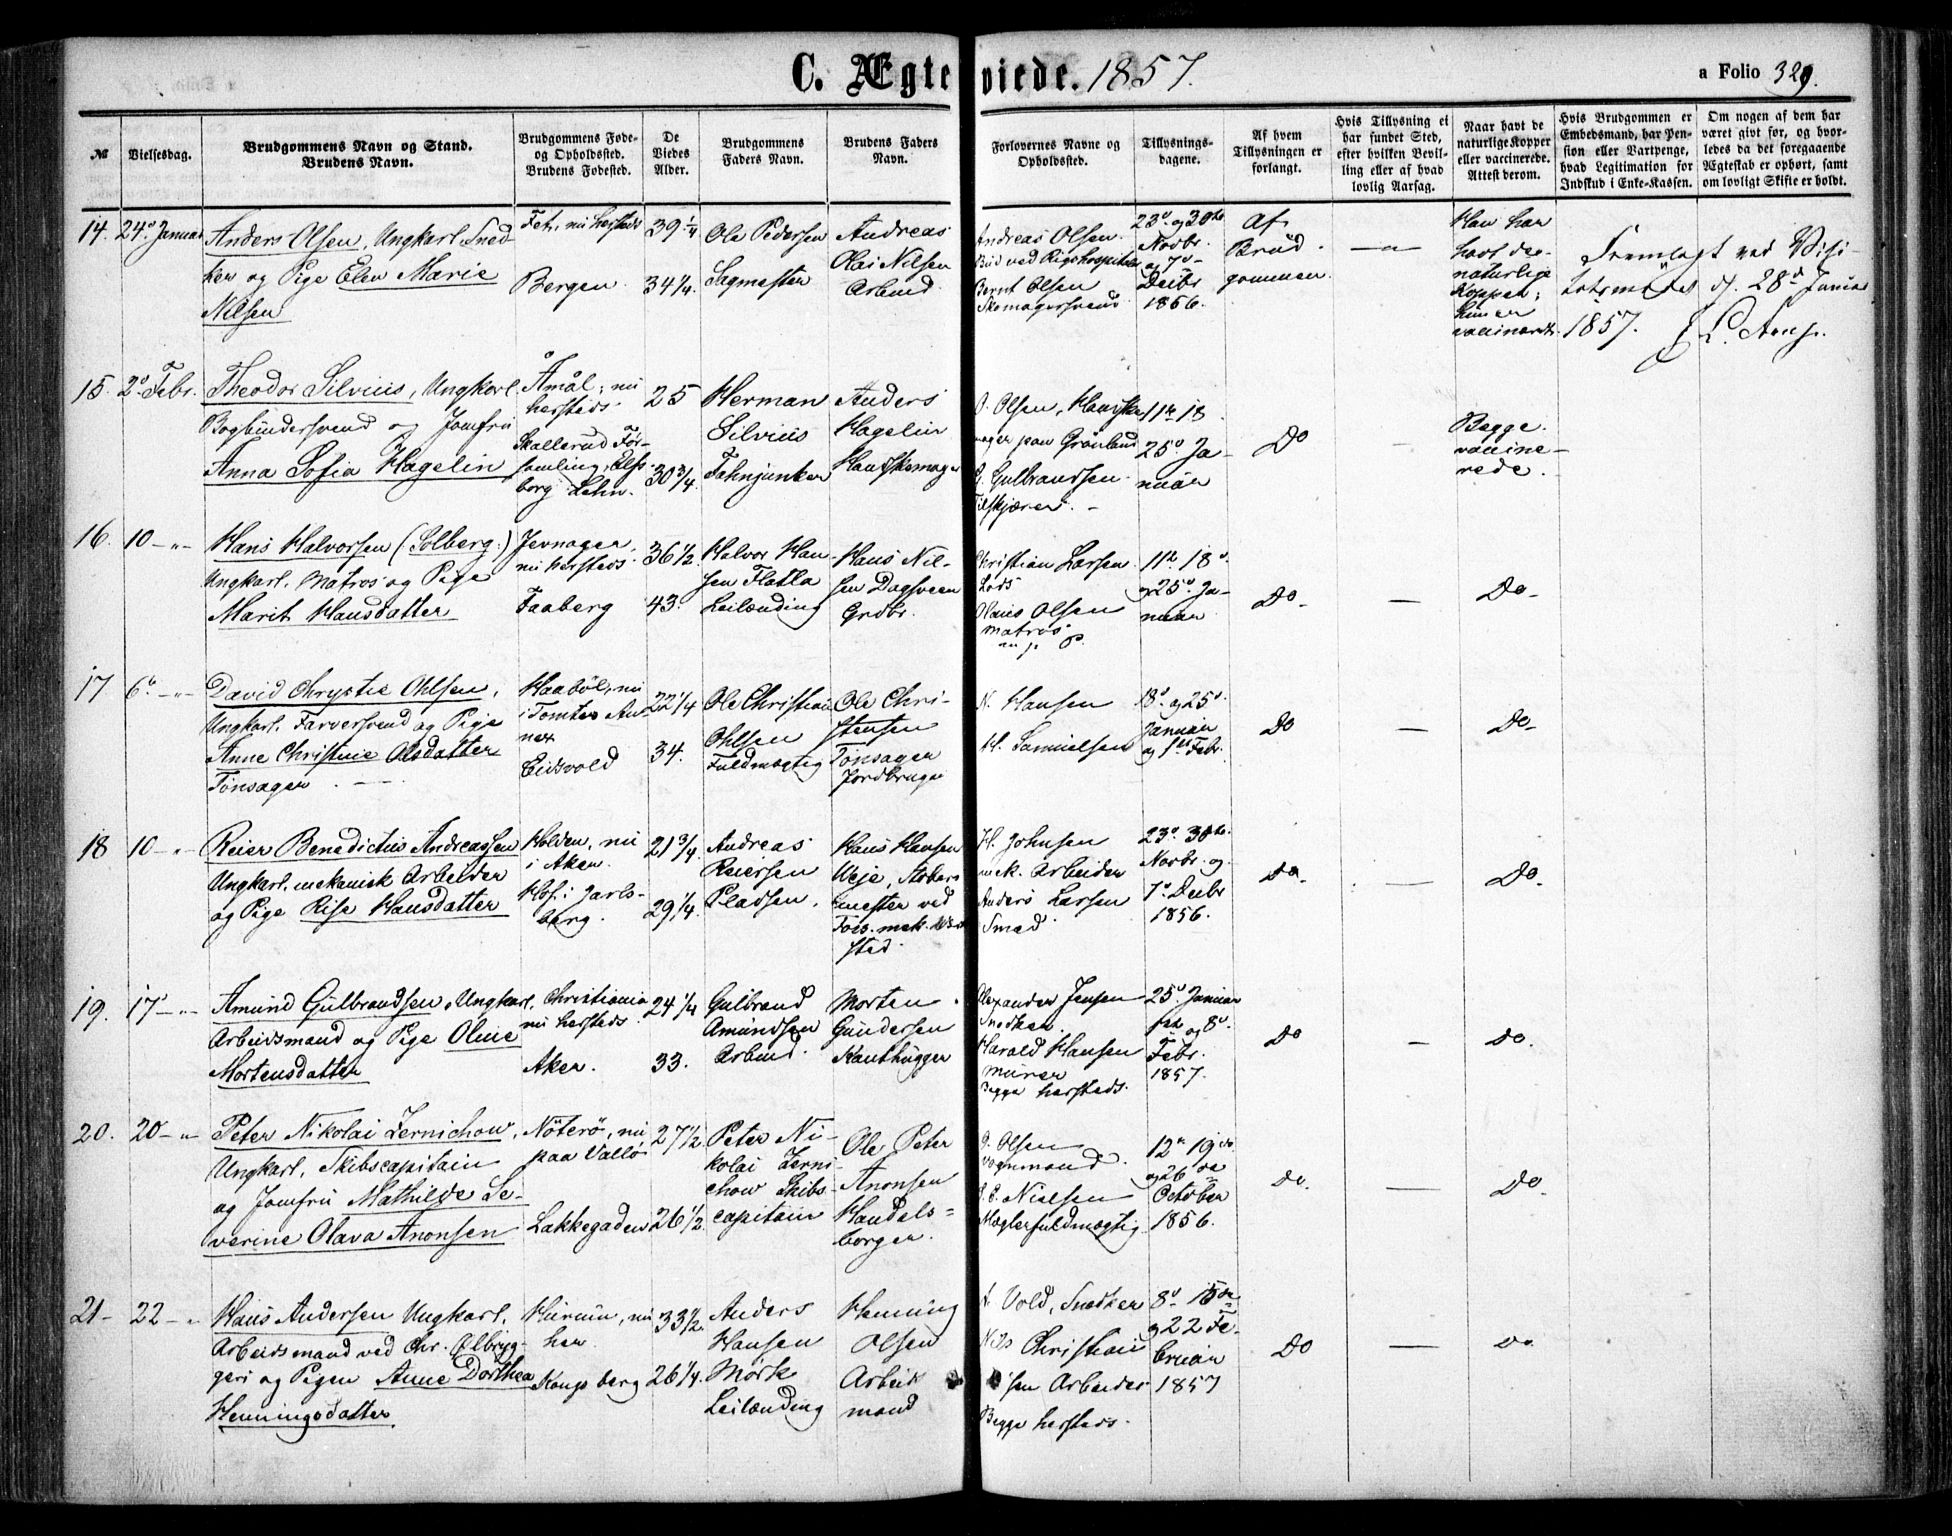 C. Ægteviede. 1857.
a Folio 329.
№
Vielsesdag.
Brudgommens Navn og Stand.
Brudens Navn.
Brudgommens Føde-
og Opholdssted.
Brudens Fødested.
De
Viedes
Alder.
Brudgommens
Faders Navn.
Brudens Faders
Navn.
Forlovernes Navne og
Opholdssted.
Tillysnings-
dagene.
Af hvem
Tillysningen er
forlangt.
Hvis Tillysning ei
har fundet Sted,
efter hvilken Bevil-
ling eller af hvad
lovlig Aarsag.
Naar havt de
naturlige Kopper
eller vaccinerede.
Attest derom.
Hvis Brudgommen er
Embedsmand, har Pen-
sion eller Vartpenge,
hvad Legitimation for
Indskud i Enke-Kassen.
Om nogen af dem har
været givt før, og hvor-
ledes da det foregaaende
Ægteskab er ophørt, samt
om lovligt Skifte er holdt.
14.
24de Januar
Anders Olsen, Ungkarl, Sned-
ker og Pige Elen Marie
Nilsen
Fet, nu hersteds
Bergen
39 1/4
34 1/4
Ole Pedersen
Sagmester
Andreas
Olai Nilsen
Arbmd.
Andreas Olsen
Bud ved Rigshospitalet
Bernt Olsen
Skomagersvend
23de og 30te
Novbr.
og 7de
Decbr
1856.
Af
Brud-
gommen
— " —
Han har
havt de
naturlige
Kopper;
hun er
vaccineret.
Fremlagt ved Visi-
tatsmødet d. 28d Januar
1857.
15.
2den Febr.
Theodor Silvius, Ungkarl
Bogbindersvend og Jomfru
Anna Sofia Hagelin
Åmål; nu
hersteds
Skallerud För-
samling, Elfs-
borg Lehn.
25
30 3/4
Herman
Silvius
Fahnjunker
Anders
Hagelin
Handskemager
O. Olsen, Handske-
mager paa Grønland
G. Gulbrandsen
Tilskjærer. —
11te 18
25de Ja-
nuar
Do
—
Begge
vaccine-
rede.
16.
10 — " —
Hans Halvorsen (Solberg)
Ungkarl, Matros og Pige
Marit Hansdatter
Jevnager,
nu hersteds
Faaberg
36 1/2
43.
Halvor Han-
sen Flatla
Leilænding
Hans Nil-
sen Dagsveen
Grdbr.
Christian Larsen
Lods
Olaus Olsen
Matros
11te 18de
og 25de Ja-
nuar
Do —
—
Do —
17
6te — " —
David Chrystie Ohlsen,
Ungkarl, Farversvend og Pige
Anne Christine Olsdatter
Tonsager. —
Haabøl, nu
i Tomter An-
nex
Eidsvold
22 1/4
34.
Ole Christian
Ohlsen
Fuldmægtig
Ole Chri-
stensen
Tonsager
Jordbruger
N. Hansen
H. Samuelsen
18de og 25de
Januar
og 1ste Febr.
Do
—
Do —
18
10 — " —
Reier Benedictus Andreassen
Ungkarl, mekanisk Arbeider
og Pige Rise Hansdatter
Holden, nu
i Aker.
Hof i Jarls-
berg.
21 3/4
29 1/4
Andreas
Reiersen
Pladsen.
Hans Hansen
Weje, Støber-
mester ved
mek. Værk-
sted.
H. Johnsen
mek. Arbeider
Anders Larsen
Smed.
23de 30te
Novbr. og
7de Decbr
1856.
Do.
—
Do.
19.
17de — " —
Amund Gulbrandsen, Ungkarl,
Arbeidsmand og Pige Oline
Mortensdatter
Christiania
nu hersteds.
Aker.
24 1/4
33.
Gulbrand
Amundsen
Arbmd.
Morten
Gundersen
Kanthugger
Alexander Jensen
Snedker
Harald Hansen
Murer
Begge hersteds.
25de Januar
1ste og 8de
Febr.
1857.
Do
—
Do.
20.
20 — " —
Peter Nikolai Zernichow,
Ungkarl, Skibscapitain
og Jomfru Mathilde Se-
verine Olava Anonsen
Nøterø, nu
paa Vallø
Lakkegaden
27 1/2
26 1/2.
Peter Ni-
kolai Zerni-
chow Skibs-
capitain
Ole Peter
Anonsen
Handels-
borger.
Olsen
Vognmand.
Nielsen
Mæglerfuldmægtig
12te 19de
og 26de
October
1856.
Do.
—
Do.
21 —
22 — "
Hans Andersen Ungkarl,
Arbeidsmand ved Chr. Ølbryg-
geri og Pigen Anne Dorthea
Henningsdatter
Hurum, nu
her.
Kongsberg
33 1/2
26 1/4.
Anders
Hansen
Mørk
Leilænding
Henning
Olsen
Arbeids
mand
A. Vold, Snedker
Nils Christian
sen Arbeider
Begge hersteds.
8de 15de
og 22 Fe-
bruar
1857
Do
—
Do